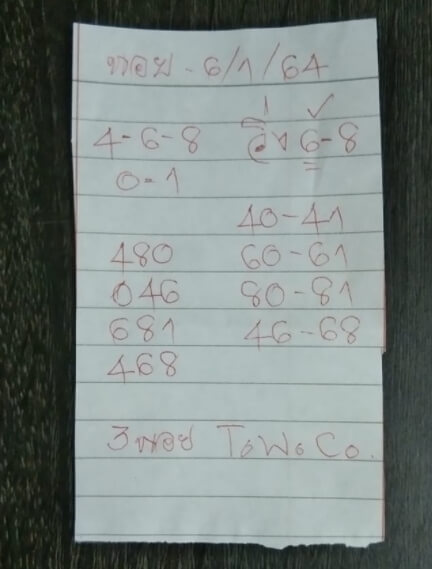 หวย - 6/1/64
1 ✓
4-6-8 วิ่ง 6-8
0-1
40-41
480 60-61
046 80-81
681 46-68
468
3 หวย T.W. Co.